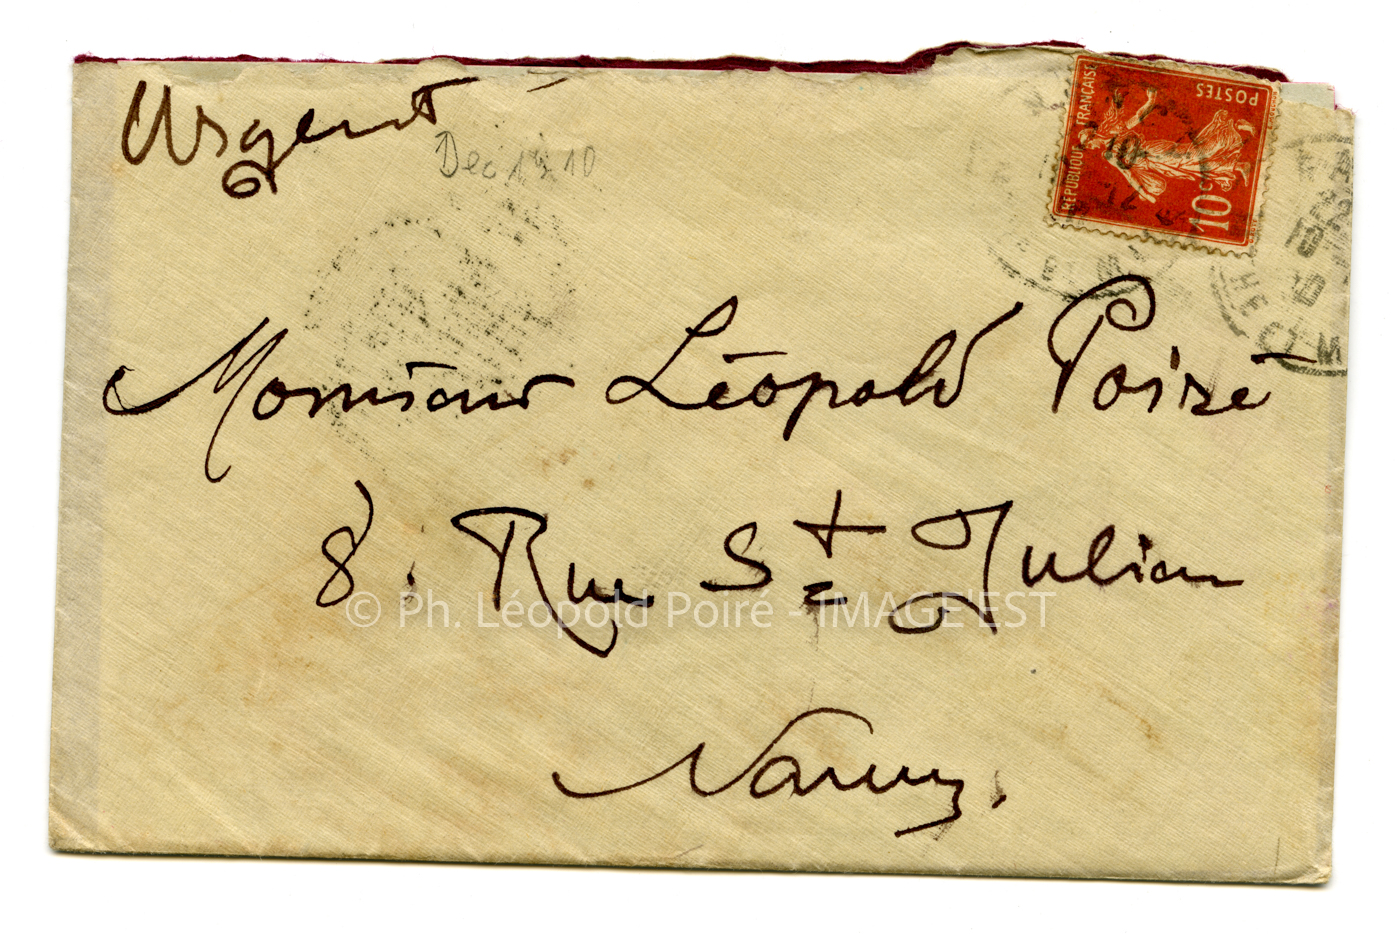 Urgent
Dec 1910
RÉPUBLIQUE FRANÇAISE
POSTES
10c
Monsieur Léopold Poiré
8. Rue Ste Julien
© Ph. Léopold Poiré - IMAGE'EST
Nancy.